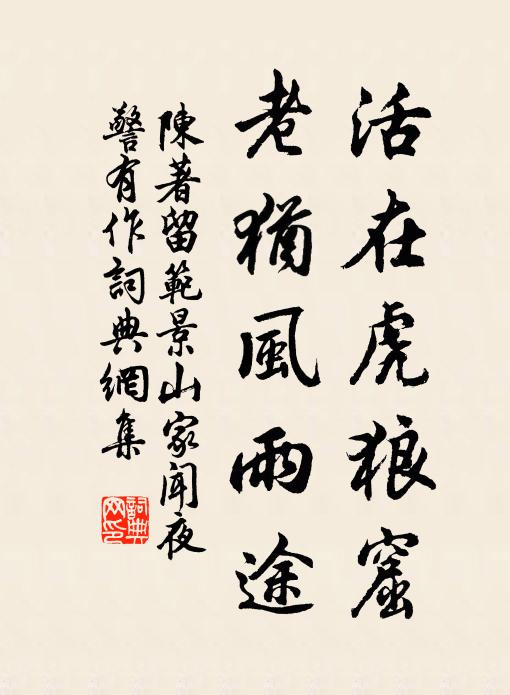 活在虎狼窟
老猶風雨途
陳著留範景山家聞夜
警有作詞典網集
詞典网印